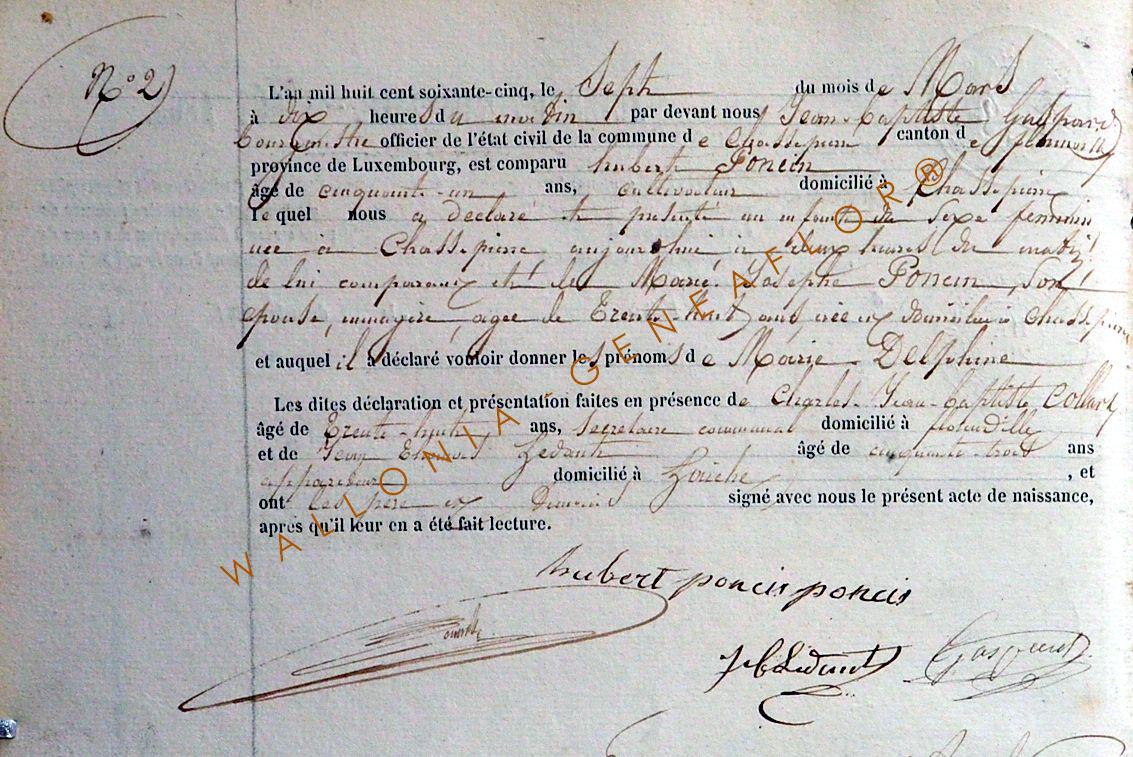 N° 2
L'an mil huit cent soixante-cinq, le Sept du mois de Mars
à dix heures du matin par devant nous Jean-Baptiste Gaspard
bourgmestre officier de l'état civil de la commune de Chassepierre canton de florenville
province de Luxembourg, est comparu hubert Poncin
âgé de cinquante-un ans, cultivateur domicilié à Chassepierre
lequel nous a déclaré et présenté un enfant du Sexe feminin
née a Chassepierre aujourd'hui à deux heures du matin
de lui comparant et de Marie Josephe Poncin, Son
épouse, menagère, agée de Trente-huit ans née et domiciliée à Chassepierre
et auquel il a déclaré vouloir donner les prénoms de Marie Delphine
Les dites déclaration et présentation faites en présence de Charles-Jean-Baptiste Collard
âgé de Trente-huit ans, Secretaire communal domicilié à
et de Jean Ledent âgé de cinquante-trois ans
domicilié à , et
ont les père et temoins signé avec nous le présent acte de naissance,
après qu'il leur en a été fait lecture.
hubert poncin poncin
Gaspard
WALLONIA-GENEAFLOR®